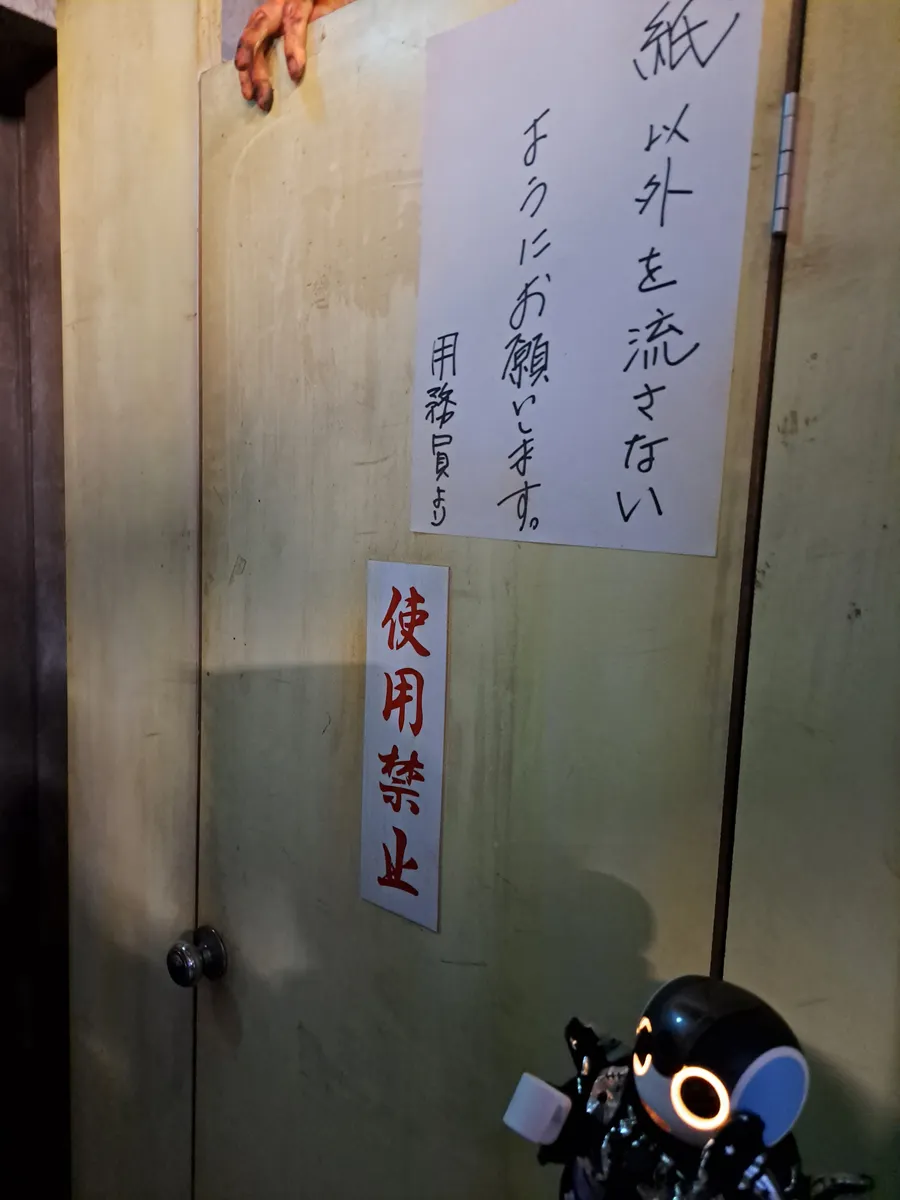 紙以外を流さない
ようにお願いします。
用務員より
使用禁止